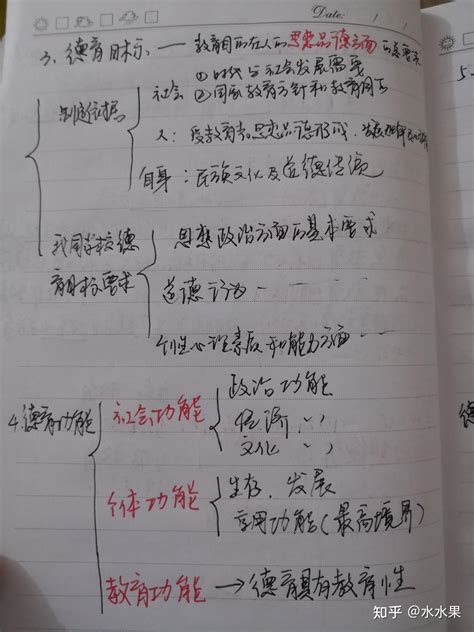 Date: / /
3、德育目标 — 教育目的在人的思想品德方面的总要求
制定依据
社会 ①时代与社会发展需要
②国家教育方针和教育目的
人：受教育者思想品德形成、发展规律
自身：民族文化及道德传统
我国学校德育目标要求
思想政治方面的基本要求
道德行为 - - -
个性心理素质和能力方面 - -
4.德育功能
社会功能
政治功能
经济 〃
文化 〃
个体功能
生存、发展
享用功能(最高境界)
教育功能 → 德育具有教育性
5、
知乎 @水水果